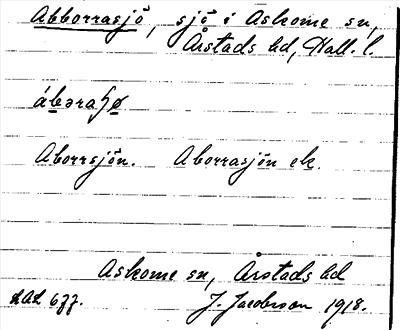 Abborrasjö, sjö i Askome sn,
Årstads hd, Hall. l.
ábəraɧø
Aborrsjön. Aborrasjön ek.
Askome sn, Årstads hd
LAL 677. J. Jacobsson 1918.